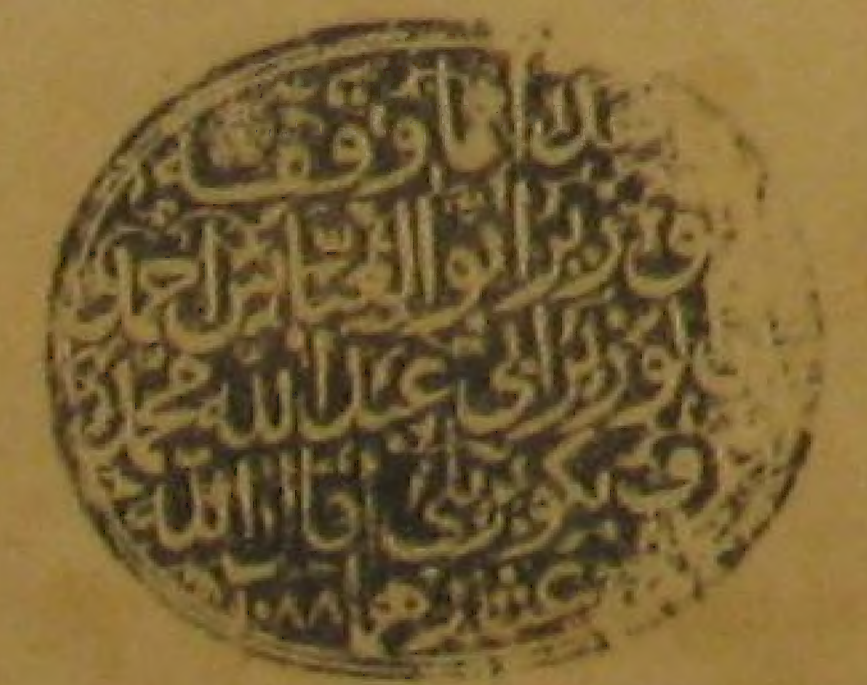 هذا مما وقفه
الوزير ابو العباس احمد
بن الوزير ابي عبد الله محمد
عرف بكوپريلي اقال الله
عثارهما ١٠٨٨